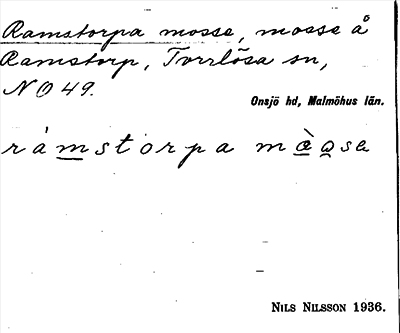 Ramstorpa mosse, mosse å
Ramstorp, Torrlösa sn,
NO 49.
Onsjö hd, Malmöhus län.
ràmstorpa mæ̀ǫsa
NILS NILSSON 1936.